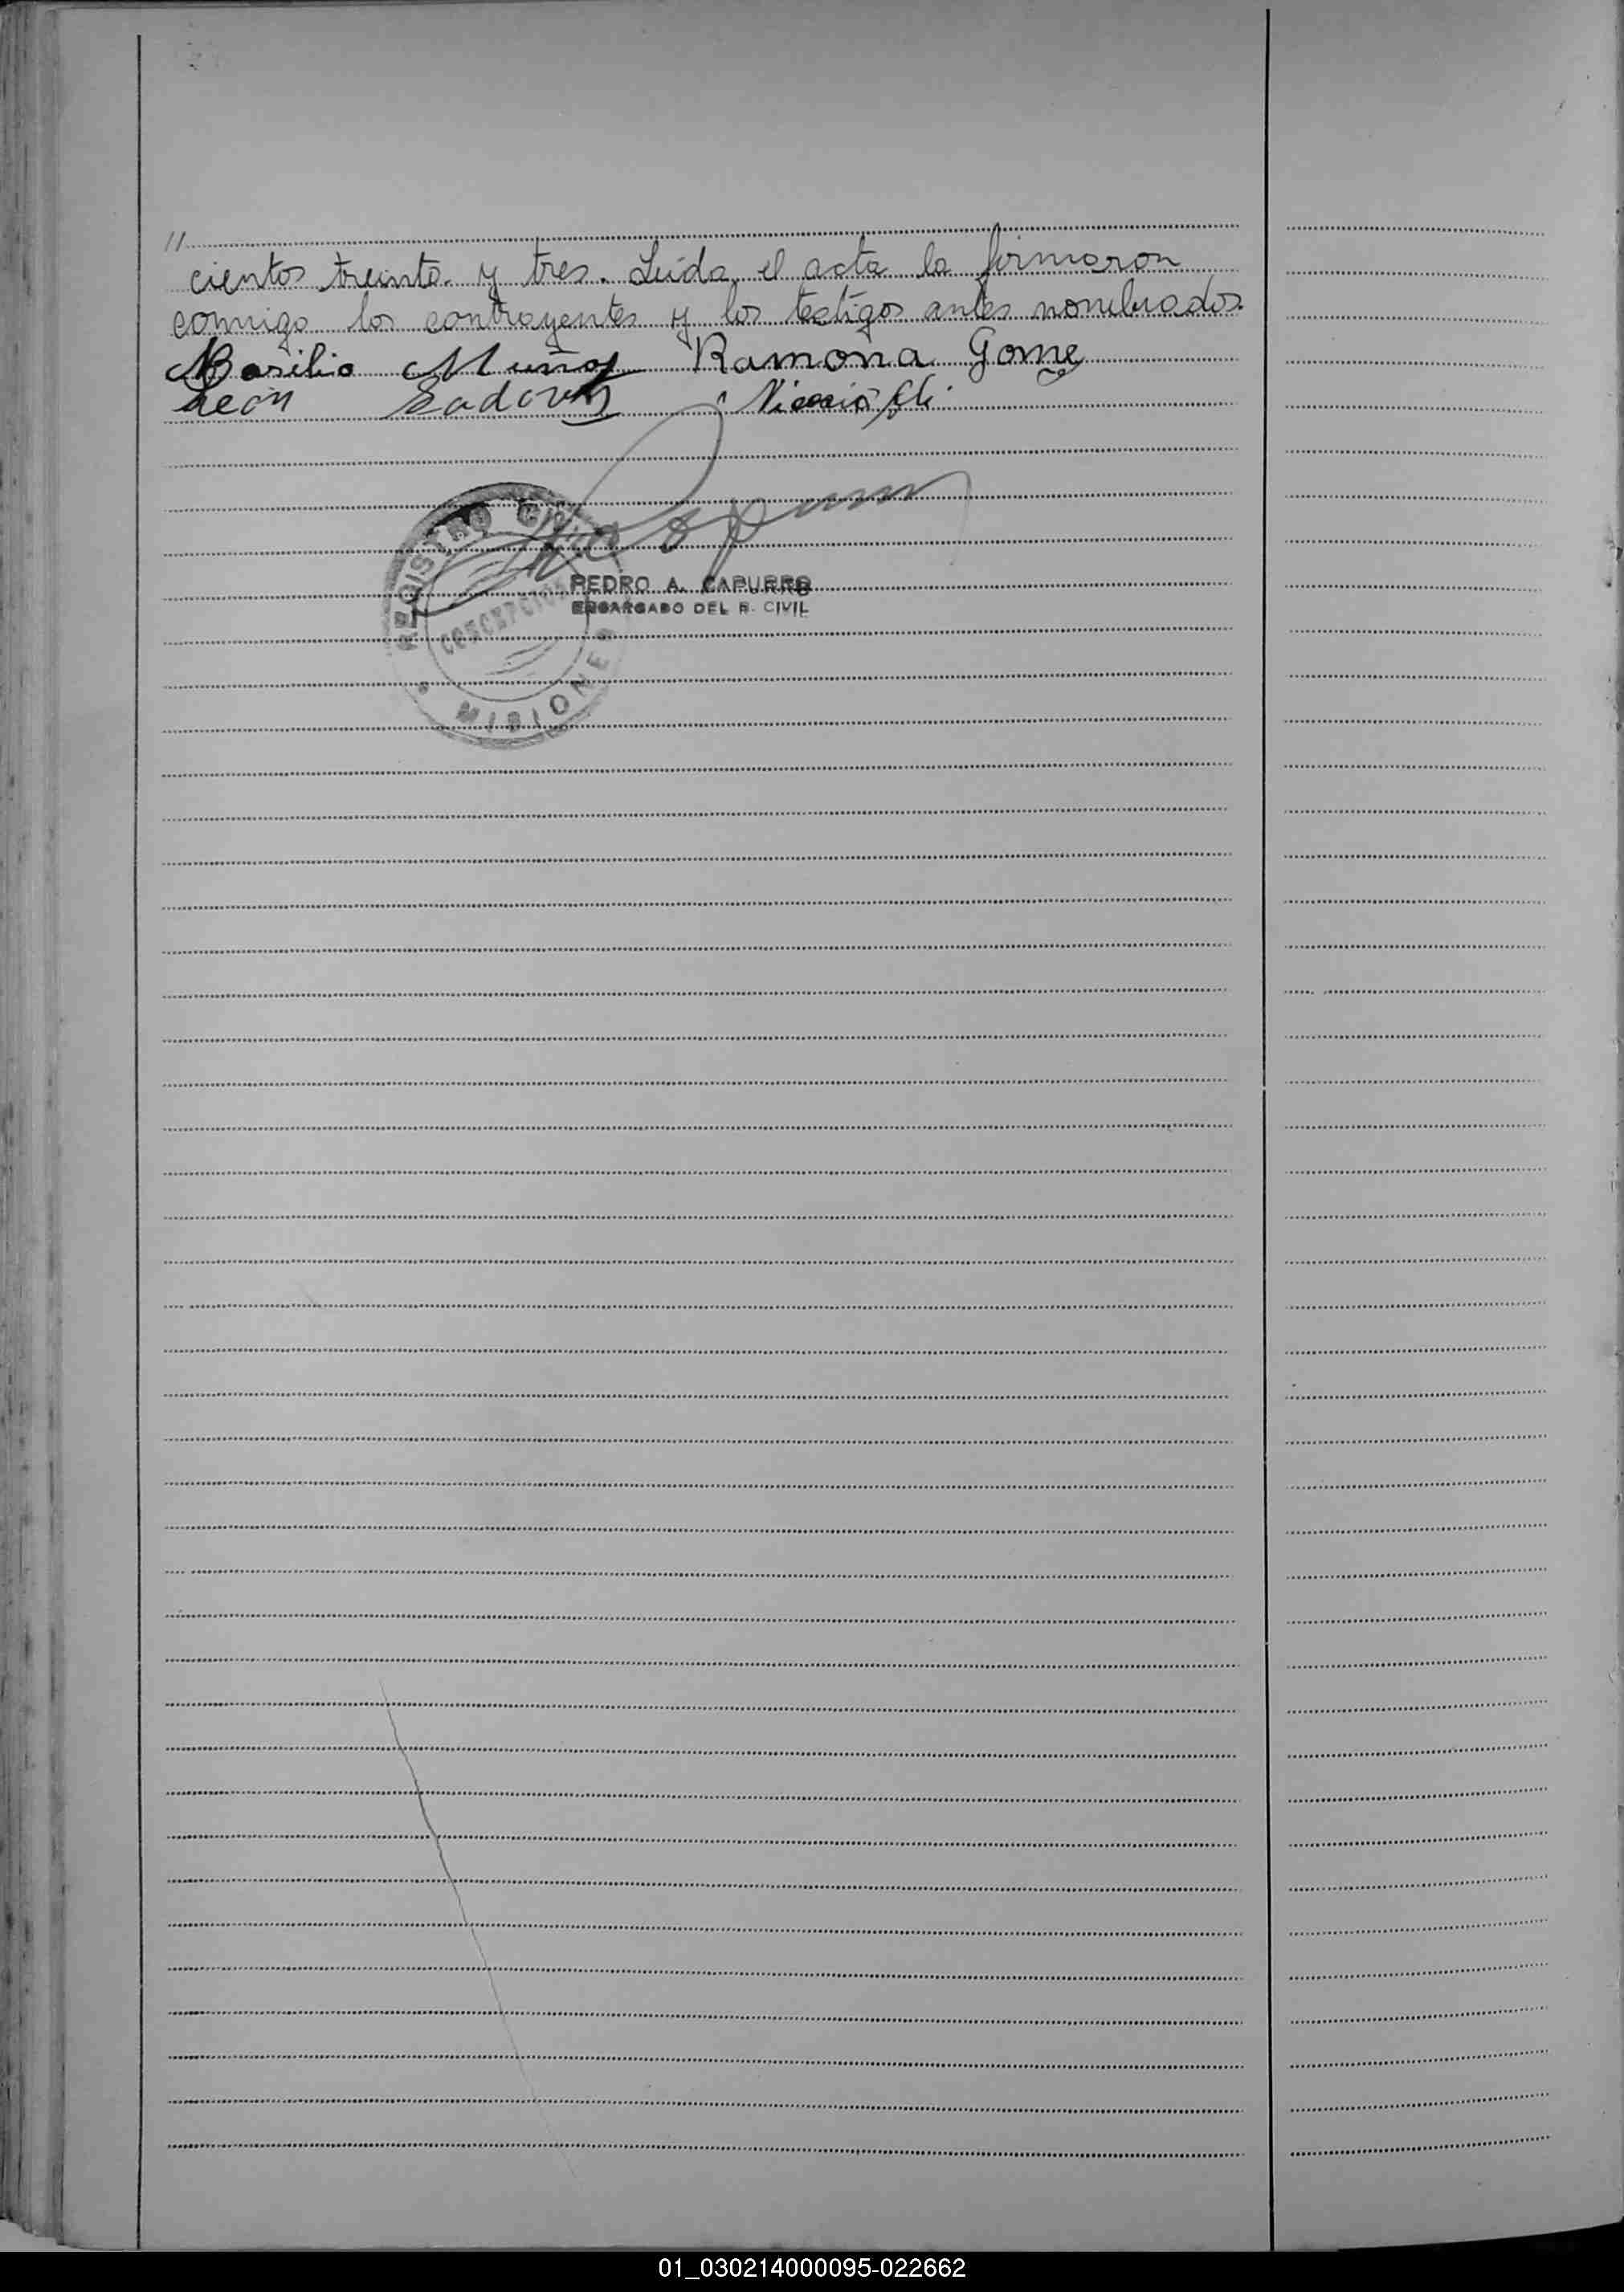 //
cientos treinta y tres. Leída el acta la firmaron
conmigo los contrayentes y los testigos antes nombrados.
Basilio Muñoz Ramona Gome
León
REGISTRO CIVIL
CONCEPCION
MISIONES
PEDRO A. CAPURRO
ENCARGADO DEL R. CIVIL
01_030214000095-022662